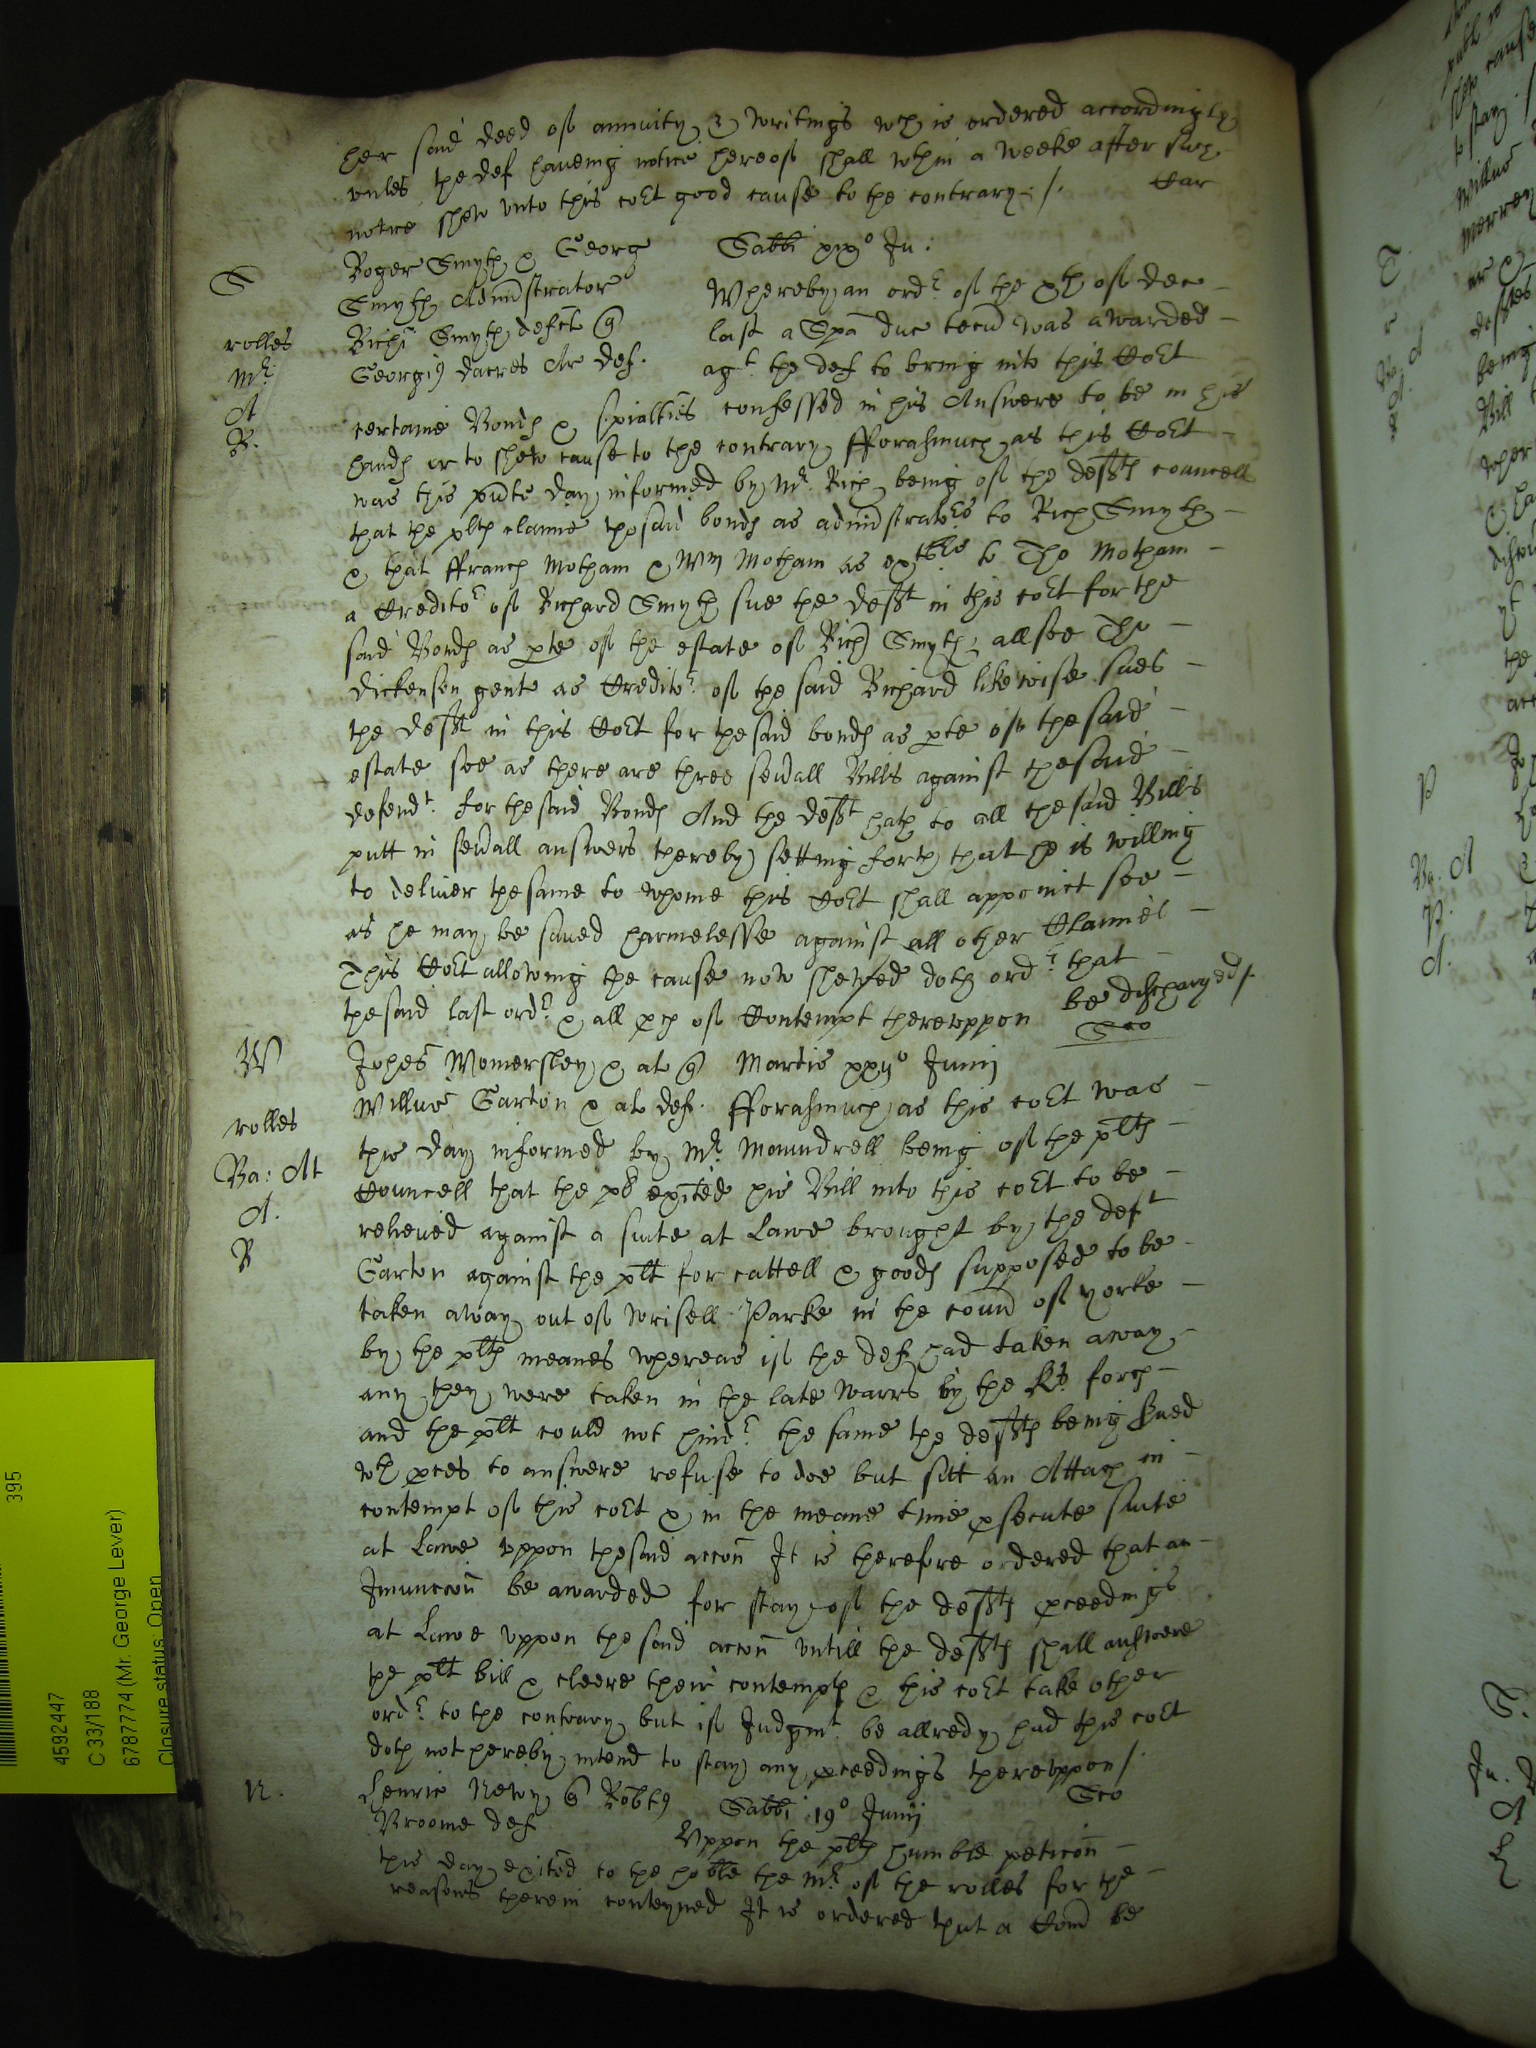 her said deed of annuity & writings wch is ordered accordingly
vnles the def haueing notice hereof shall wthin a weeke after such
notice shew vnto this cort good cause to the contrary ./. Car
S
Roger Smyth & Georg
Smyth Administrator
Richi Smyth defct
Georgius Dacres Ar def.
rolles
Mr
A
R.
Sabbi xix° Ju:
Whereby an ordr of the xth of Dec
last a Spa duc tecu was awarded
agt the def to bring into this Cort
certaine Bonds & spialties confessed in his Answere to be in his
hands or to shew cause to the contrary fforasmuch as this Cort
was this pnte day informed by Mr Rich being of the defts councell
that the plts clame the said bonds as administrators to Rich Smyth
& that ffrancs Motham & Wm Motham as exrs to Tho Motham
a Creditor of Richard Smyth sue the deft in this cort for the
said Bonds as pte of the estate of Rich Smyth allsoe Tho
Dickenson gent as Creditor of the said Richard likewise sues
the deft in this Cort for the said bonds as pte of the said
estate soe as there are three seuall Bills against the said
defendt for the said Bonds And the deft hath to all the said Bills
putt in seuall answers thereby setting forth that he is willing
to deliuer the same to whome this Cort shall appoinct soe
as he may be saued harmelesse against all other Claimes
This Cort allowing the cause now shewed doth ordr that
the said last ordr & all pces of Contempt therevppon be discharged/.
Sco
W
Johes Womersley & al Martis xxij° Junij
Willus Garton & al def. fforasmuch as this cort was
rolles
this day informed by Mr Maundrell being of the plts
Ba: At
Councell that the pl exited his Bill into this cort to be
A.
relieued against a suite at Lawe brought by the deft
R
Garton against the plt for cattell & goods supposed to be
taken away out of Wrisell Parke in the coun of yorke
by the plts meanes whereas if the def had taken away
any they were taken in the late warrs by the Ks forcs
and the plt could not hindr the same the defts being sued
wth pces to answere refuse to doe but sitt an Attach in
contempt of this cort & in the meane time psecute suite
at Lawe vppon the said accon It is therefore ordered that an
Iniunccon be awarded for stay of the defts pceedings
at Lawe vppon the said accon vntill the defts shall answere
the plt bill & cleere their contempts & this cort take other
ordr to the contrary but if Judgmt be allredy had this cort
doth not hereby intend to stay any pceedings therevppon/.
Sco
N.
Henric Newy Robtus
Broome def
Sabbi 19° Junij
Vppon the plts humble peticon
this day exited to the hoble the Mr of the rolles for the
reasons therein conteyned It is ordered that a Com be
395
4592447
C 33/188
6787774 (Mr. George Lever)
Closure status: Open